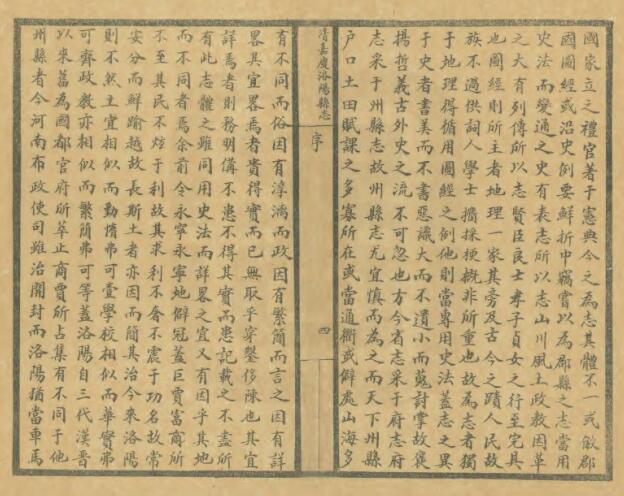 國家立之禮官著于憲典今之為志其體不一或倣郡
國圖經或沿史例要鮮折中竊嘗以為郡縣之志當用
史法而變通之史有表志所以志山川風土政教因革
之大有列傳所以志賢臣民士孝子貞女之行至完具
也圖經則所主者地理一家其旁及古今之蹟人民故
族不過供詞人學士摛採梗概非所重也故為志者獨
于地理得循用圖經之例他則當專用史法蓋志之異
于史者書美而不書惡識大而不遺小而蒐討掌故褒
揚哲義古外史之流不可忽也方今省志采于府志府
志采于州縣志故州縣志尤宜慎而為之而天下州縣
戶口土田賦課之多寡所在或當通衢或僻處山海多
清嘉慶洛陽縣志
序
四
有不同而俗因有淳漓而政因有繁簡而言之因有詳
畧其宜畧焉者貴得實而已無取乎穿鑿侈陳也其宜
詳焉者則務明備不患不得其實而患記載之不盡所
有此志體之雖同用史法而詳畧之宜又有因乎其地
而不同者焉余前令永寧永寧地僻冠蓋巨賈富商所
不至其民不炫于利故其求利不奢不震于功名故常
安分而鮮踰越故長斯土者亦因而簡其治今來洛陽
則不然土宜相似而勤惰弗可壹學校相似而華實弗
可齊政教亦相似而繁簡弗可等蓋洛陽自三代漢晉
以來舊為國都官府所萃止商賈所占集有不同于他
州縣者今河南布政使司雖治開封而洛陽猶當車馬